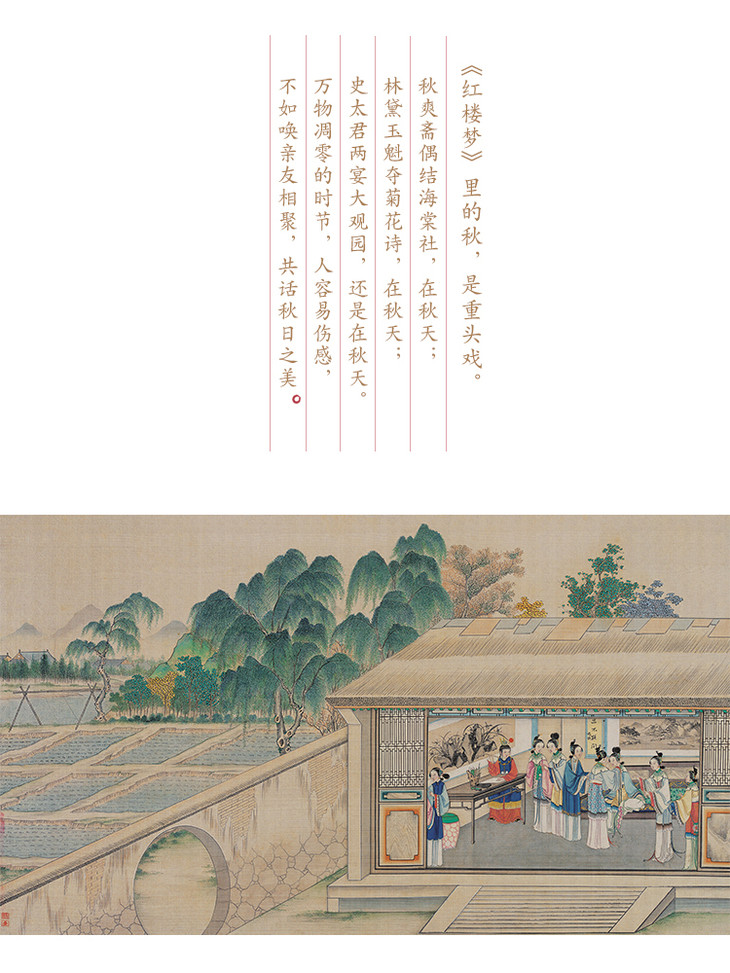 《红楼梦》里的秋，是重头戏。
秋爽斋偶结海棠社，在秋天；
林黛玉魁夺菊花诗，在秋天；
史太君两宴大观园，还是在秋天。
万物凋零的时节，人容易伤感，
不如唤亲友相聚，共话秋日之美。